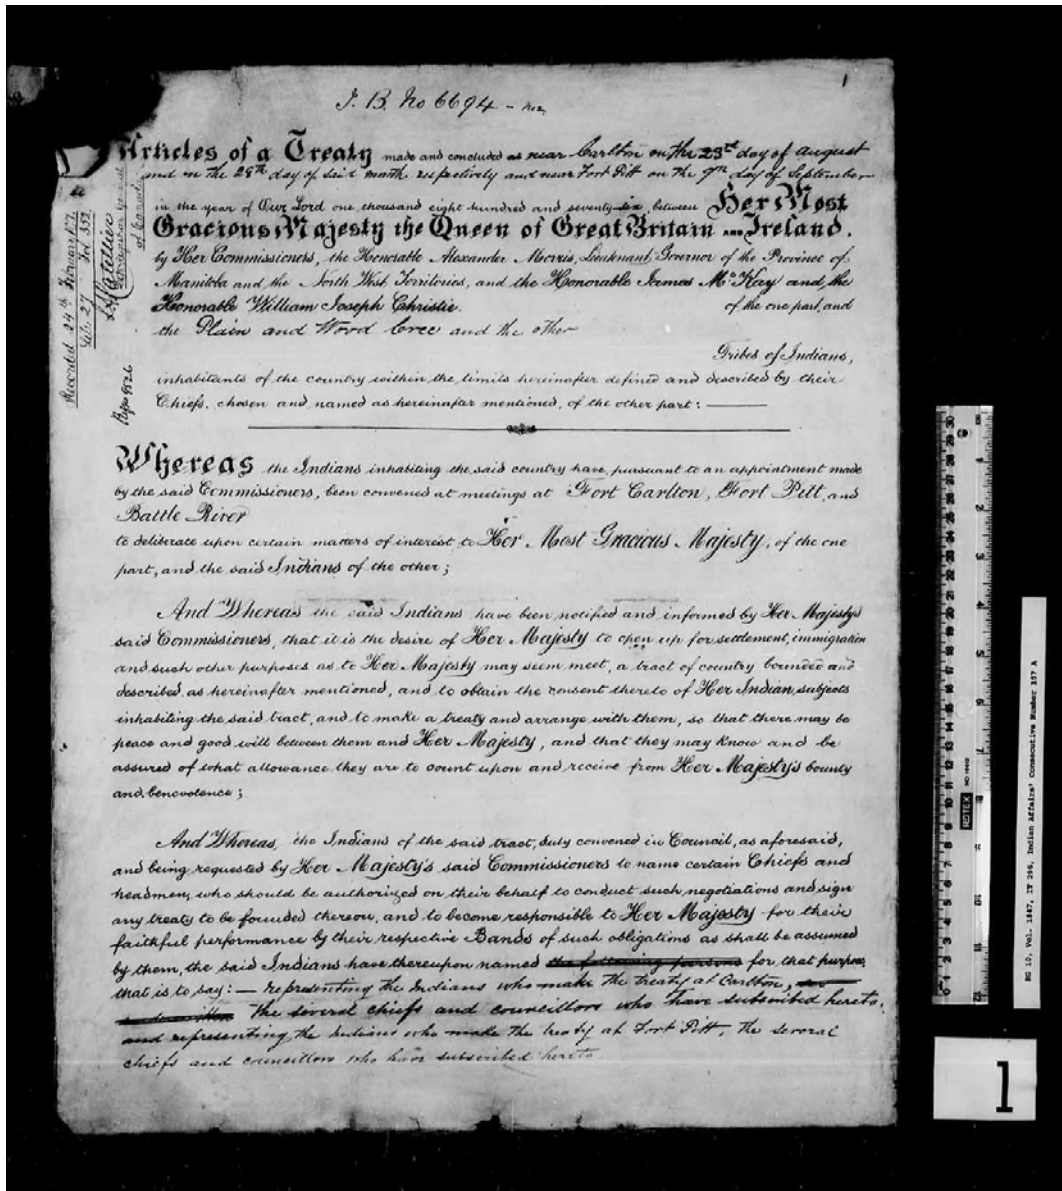 1
I. B. No 6694 - No 2
Articles of a Treaty made and concluded at near Carlton on the 23rd day of August
and on the 28th day of said month respectively and near Fort Pitt on the 9th day of September
in the year of Our Lord one thousand eight hundred and seventy-six between Her Most
Gracious Majesty the Queen of Great Britain and Ireland.
by Her Commissioners, the Honorable Alexander Morris, Lieutenant Governor of the Province of
Manitoba and the North West Territories, and the Honorable James McKay and the
Honorable William Joseph Christie. of the one part, and
the Plain and Wood Cree and the other
Tribes of Indians,
inhabitants of the country within the limits hereinafter defined and described by their
Chiefs, chosen and named as hereinafter mentioned, of the other part:
Whereas the Indians inhabiting the said country have, pursuant to an appointment made
by the said Commissioners, been convened at meetings at Fort Carlton, Fort Pitt, and
Battle River
to deliberate upon certain matters of interest to Her Most Gracious Majesty, of the one
part, and the said Indians of the other;
And Whereas the said Indians have been notified and informed by Her Majesty's
said Commissioners, that it is the desire of Her Majesty to open up for settlement, immigration
and such other purposes as to Her Majesty may seem meet, a tract of country bounded and
described as hereinafter mentioned, and to obtain the consent thereto of Her Indian subjects
inhabiting the said tract, and to make a treaty and arrange with them, so that there may be
peace and good will between them and Her Majesty, and that they may know and be
assured of what allowance they are to count upon and receive from Her Majesty's bounty
and benevolence;
And Whereas, the Indians of the said tract, duly convened in Council, as aforesaid,
and being requested by Her Majesty's said Commissioners to name certain Chiefs and
headmen, who should be authorized on their behalf to conduct such negotiations and sign
any treaty to be founded thereon, and to become responsible to Her Majesty for their
faithful performance by their respective Bands of such obligations as shall be assumed
by them, the said Indians have thereupon named the following persons for that purpose,
that is to say:— representing the Indians who make the treaty at Carlton,
the several chiefs and councillors who have subscribed hereto,
and representing the Indians who make the treaty at Fort Pitt, the several
chiefs and councillors who have subscribed hereto.
Recorded 24th February 1877
Lib. 27 Fol. 353.
Deputy Registrar General
of Canada
Refce 9526
RG 10, Vol. 1847, IT 296, Indian Affairs' Consecutive Number 157 A
ROTEX
1